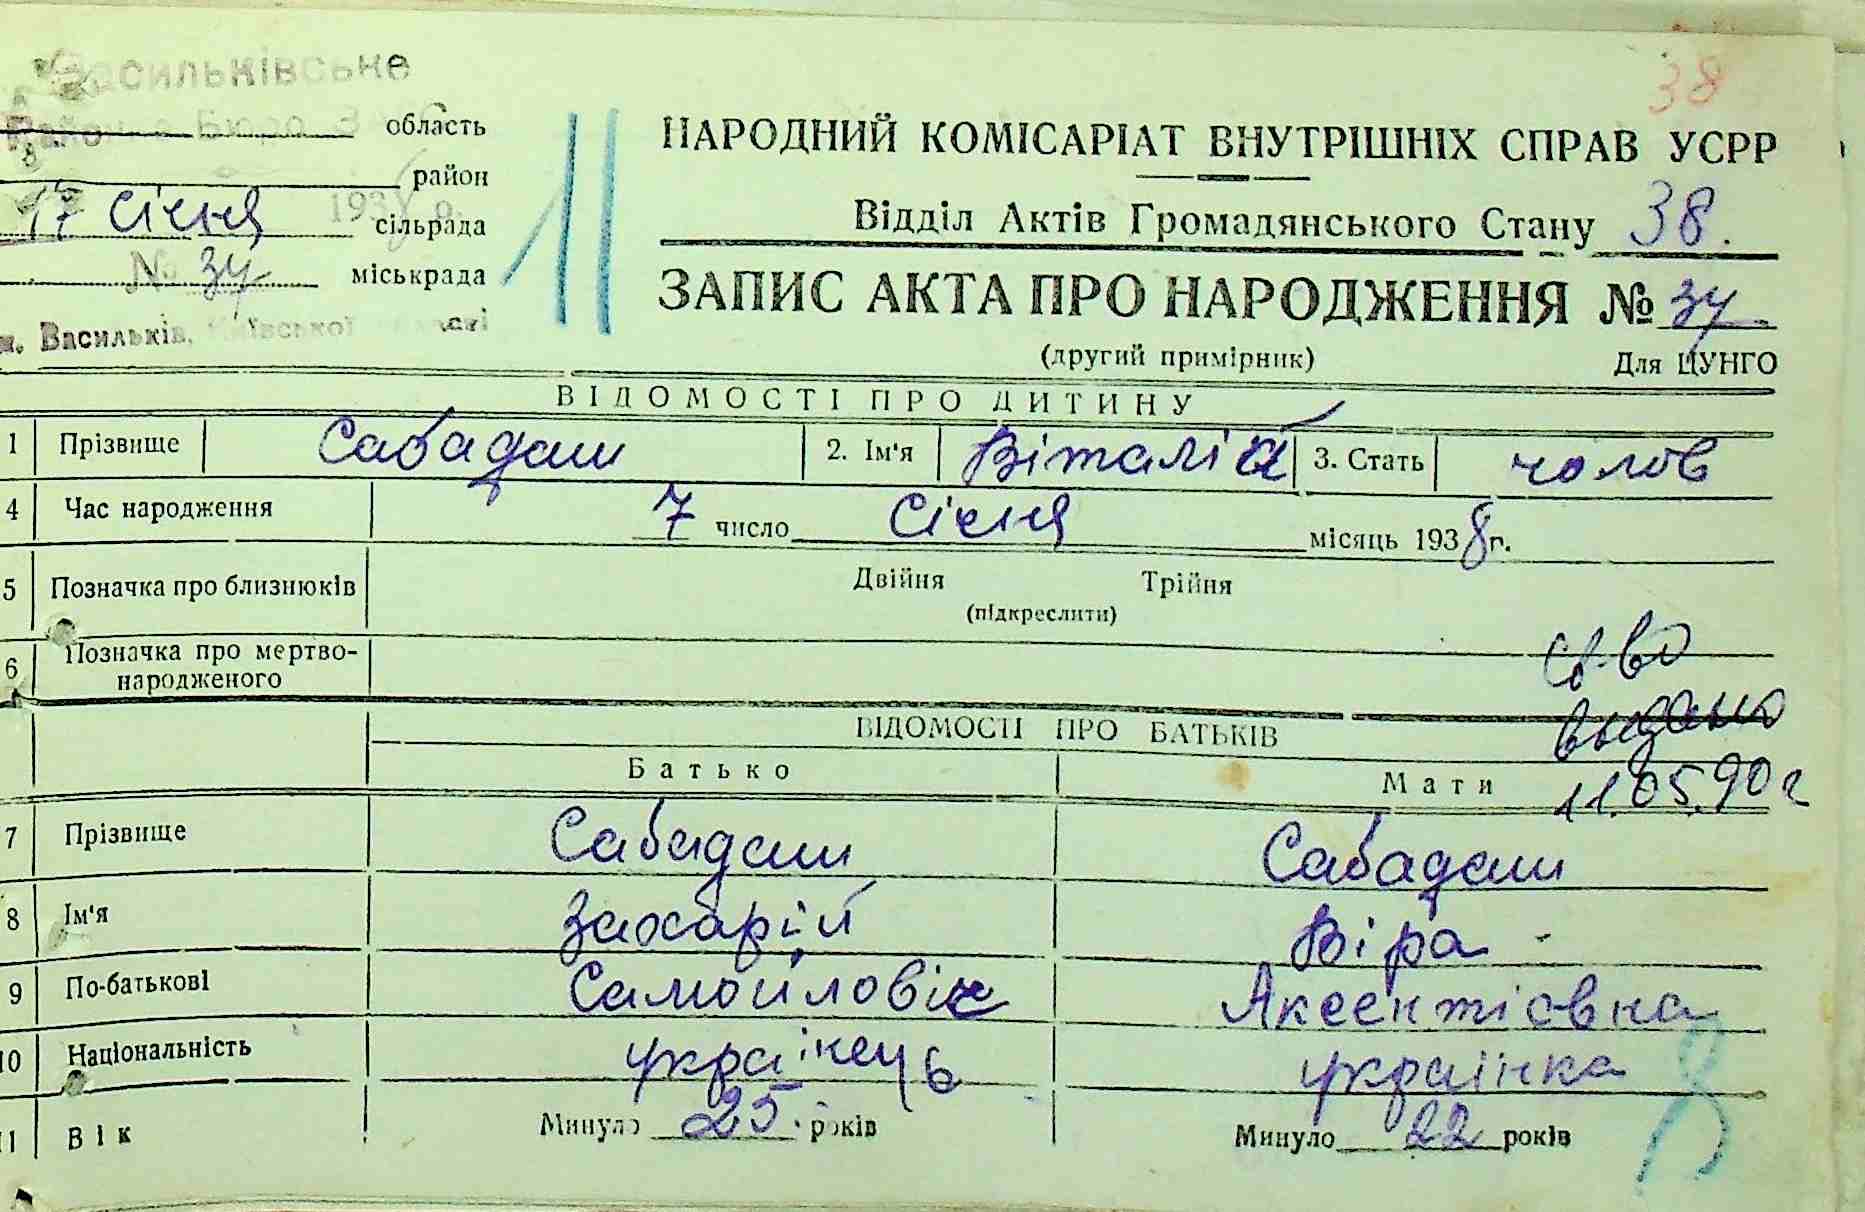 Васильківське
Район Бюро
область
район
17 Січня 1938 р. сільрада
№ 34 міськрада
м. Васильків, Київської області
38
НАРОДНИЙ КОМІСАРІАТ ВНУТРІШНІХ СПРАВ УСРР
Відділ Актів Громадянського Стану 38.
ЗАПИС АКТА ПРО НАРОДЖЕННЯ № 34
(другий примірник) Для ЦУНГО
ВІДОМОСТІ ПРО ДИТИНУ
1 Прізвище Сабадаш 2. Ім'я Віталій 3. Стать чолов
4 Час народження 7 число Січня місяць 1938 г.
5 Позначка про близнюків Двійня Трійня
(підкреслити)
6 Позначка про мертво-
народженого
св-во
выдано
11.05.90 г
ВІДОМОСТІ ПРО БАТЬКІВ
Батько Мати
7 Прізвище Сабадаш Сабадаш
8 Ім'я Захарій Віра
9 По-батькові Самойловіч Аксентієвна
10 Національність українець українка
11 Вік Минуло 25 років Минуло 22 років